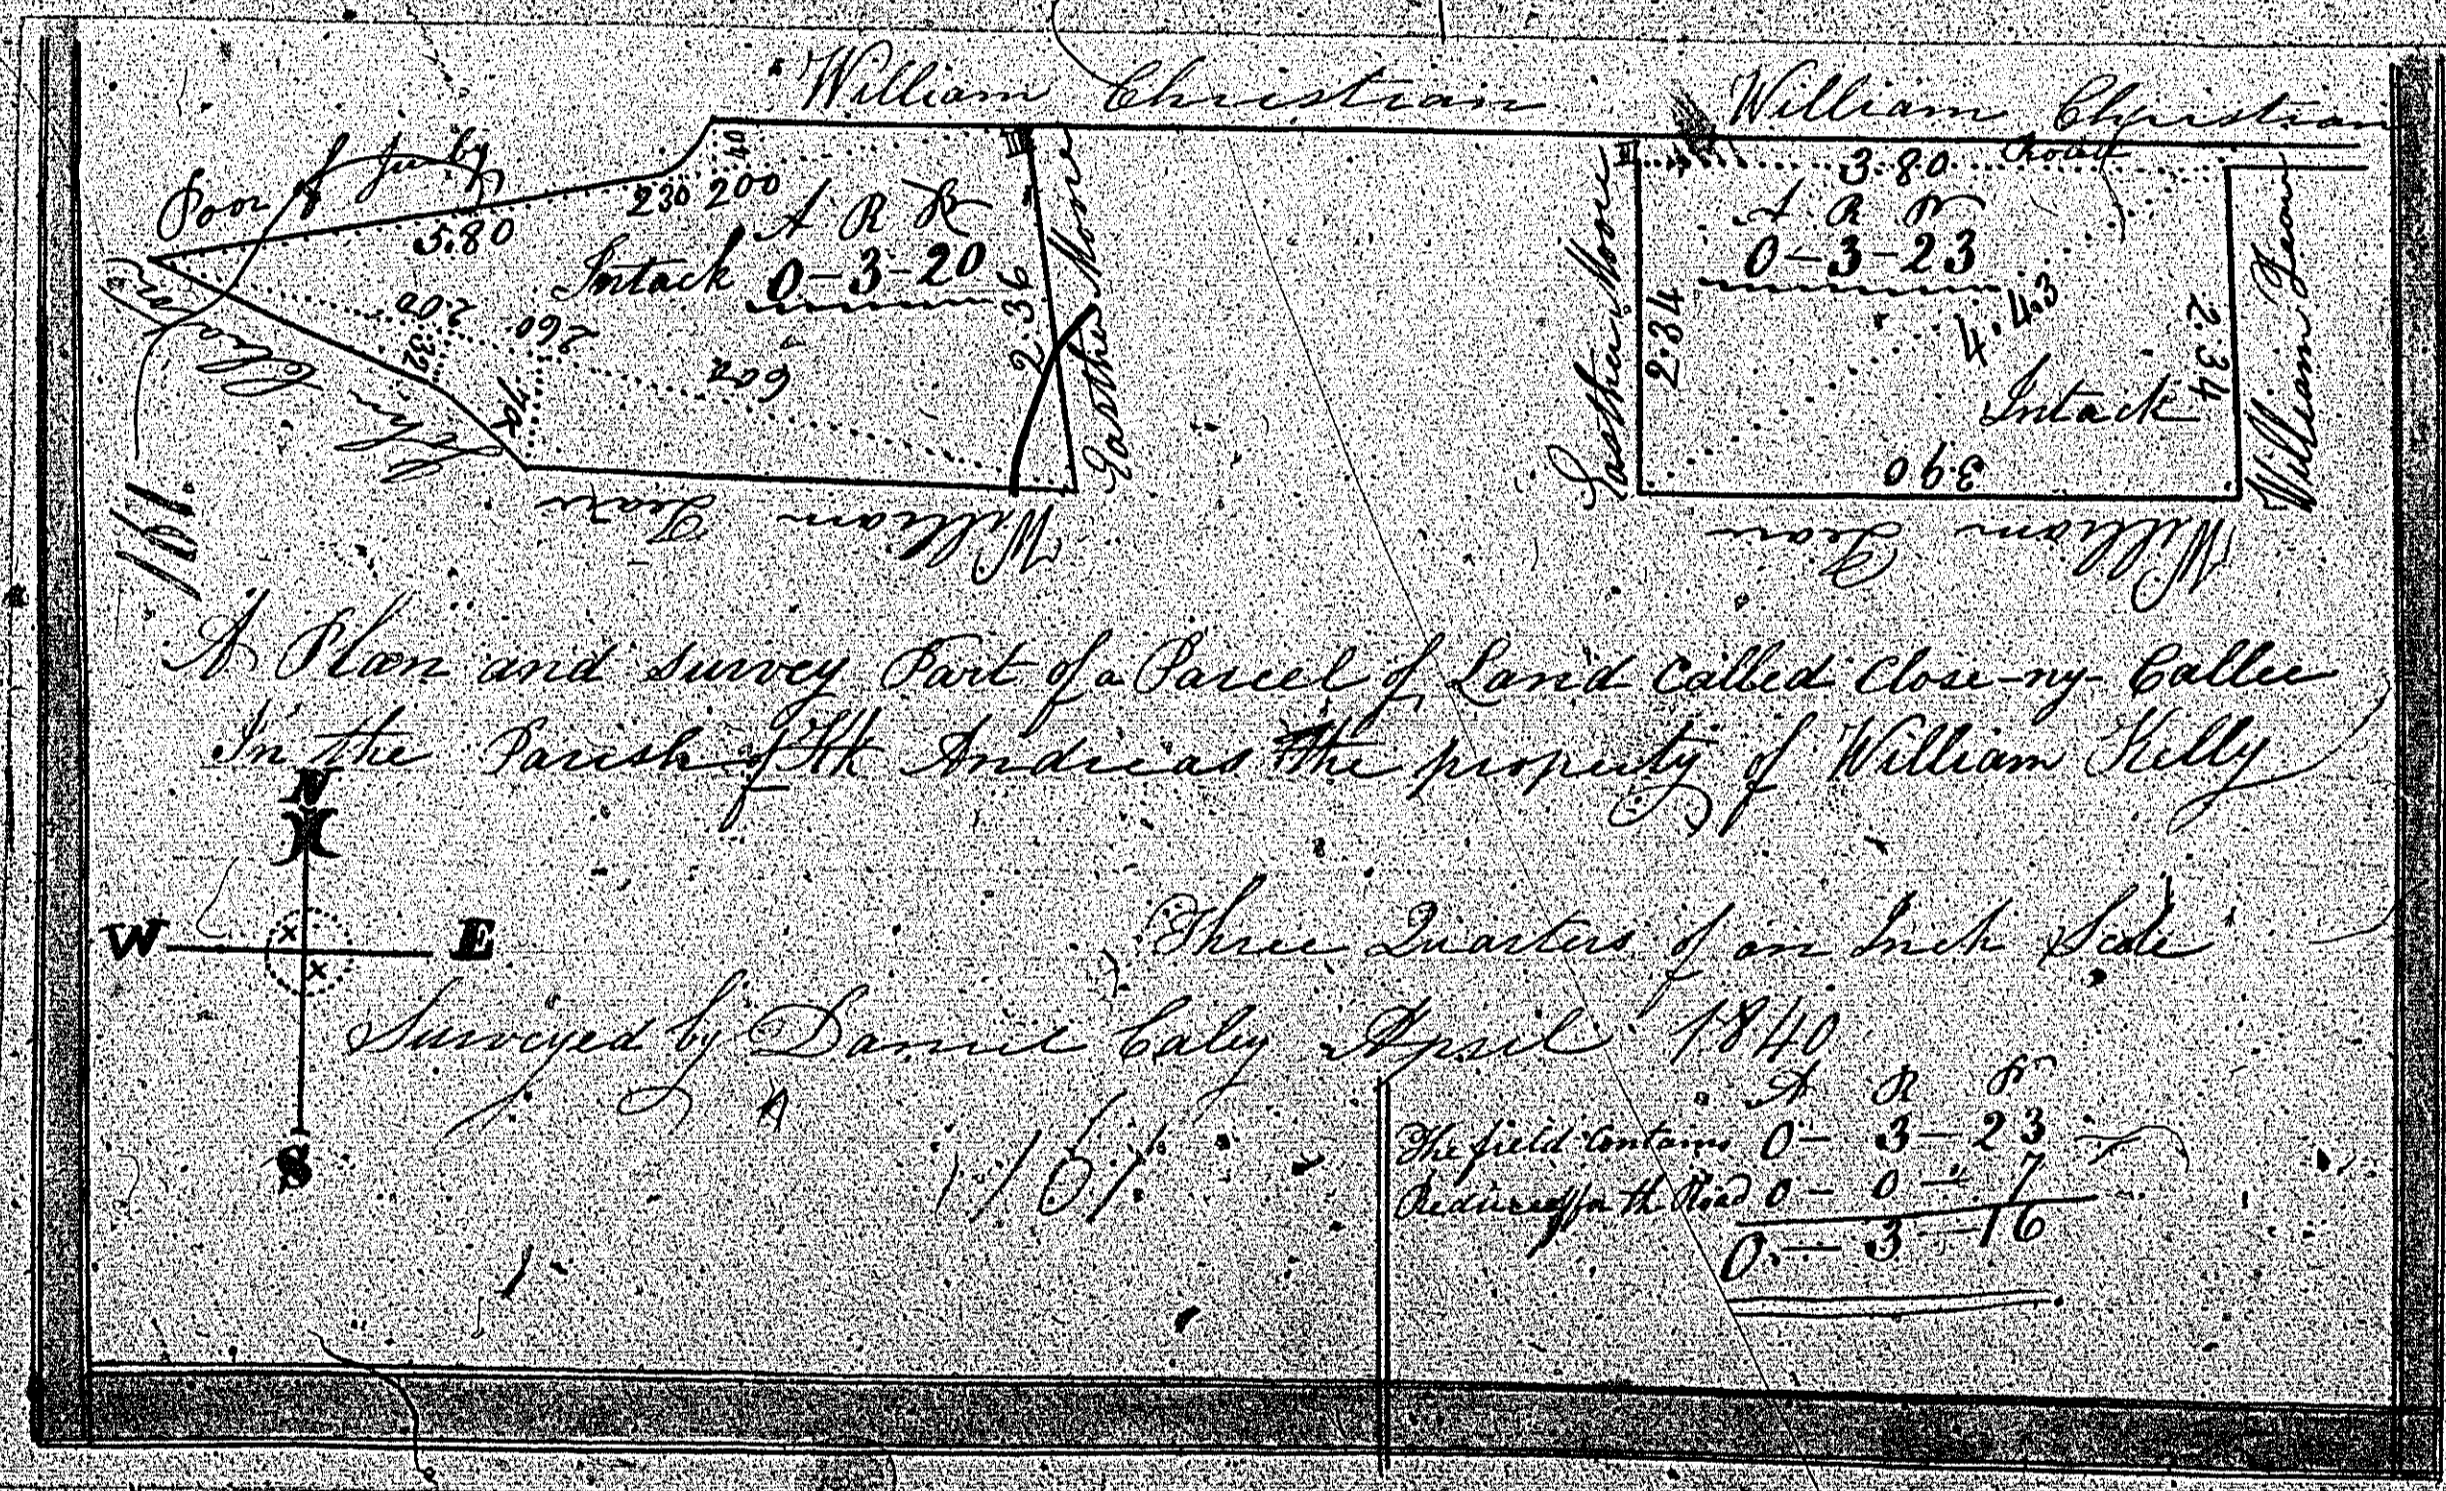 William Christian
William Christian
Poor of Jurby
230 200
40
5.80
A R P
Intack 0-3-20
200
260
32
602
2.36
Easther Moore
John
William Teare
Easther Moore
3.80 Road
A R P
0-3-23
2.34
4.43
2.34
Intack
3.90
William Teare
William Teare
A Plan and survey Part of a Parcel of Land Called Close-ny-Collee
In the Parish of Kk Andreas the property of William Kelly
N
W E
S
Three Quarters of an Inch Scale
Surveyed by Daniel Caley April 1840
A R P
The field Contains 0-3-23
Reduced for the Road 0-0-7
0-3-16